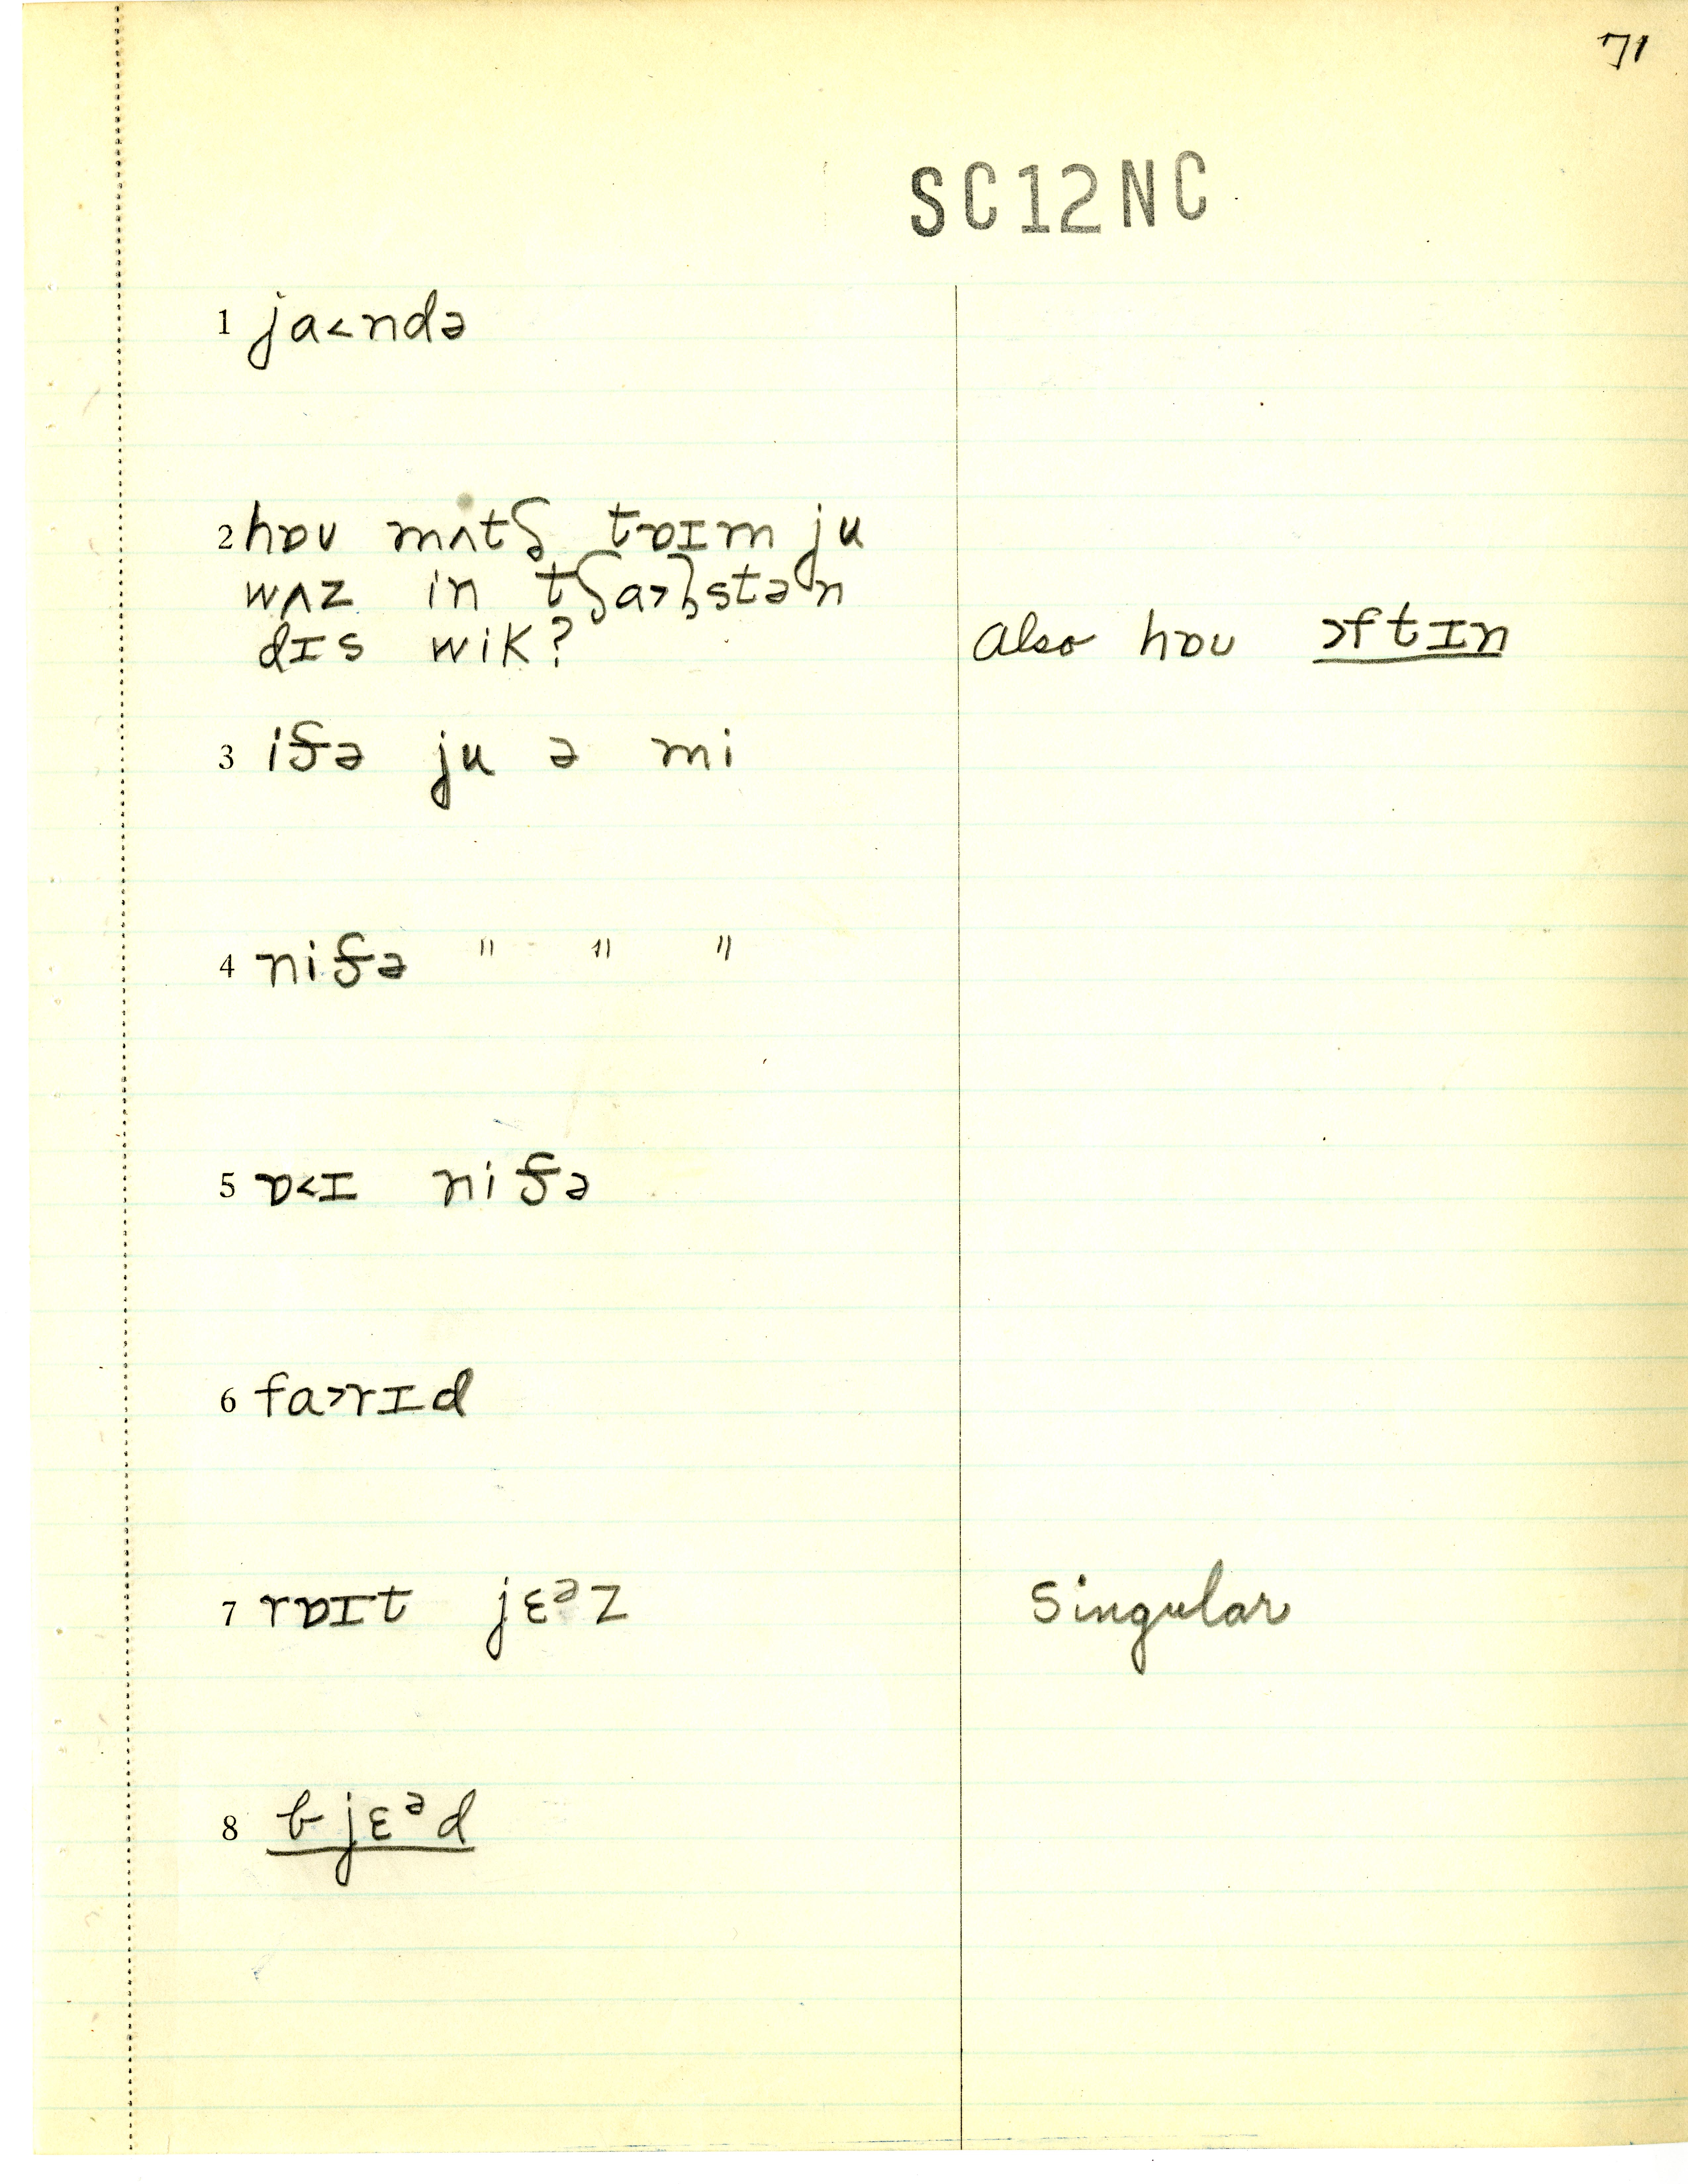 71
SC12NC
1 ja˂ndə
2 hɒu mʌtʃ tɒɪm ju
wʌz in tʃa˃ɫstən
dɪs wik?
Also hɒu ɔftɪn
3 iðə ju ə mi
4 niðə " " "
5 ɒ˂ɪ niðə
6 fa˃rɪd
7 rɒɪt jɛᵊz
Singular
8 bjɛᵊd